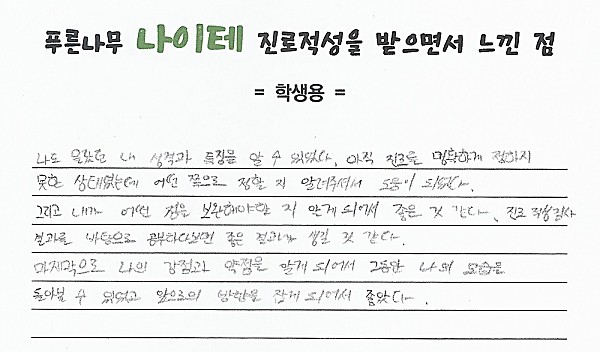 푸른나무 나이테 진로적성을 받으면서 느낀 점
= 학생용 =
나도 몰랐던 내 성격과 특징을 알 수 있었다. 아직 진로를 명확하게 정하지
못한 상태였는데 어떤 쪽으로 정할 지 알려주셔서 도움이 되었다.
그리고 내가 어떤 점을 보완해야할 지 알게 되어서 좋은 것 같다. 진로 적성검사
결과를 바탕으로 공부하다보면 좋은 결과가 생길 것 같다.
마지막으로 나의 강점과 약점을 알게 되어서 그동안 나의 모습을
돌아볼 수 있었고 앞으로의 방향을 잡게 되어서 좋았다.